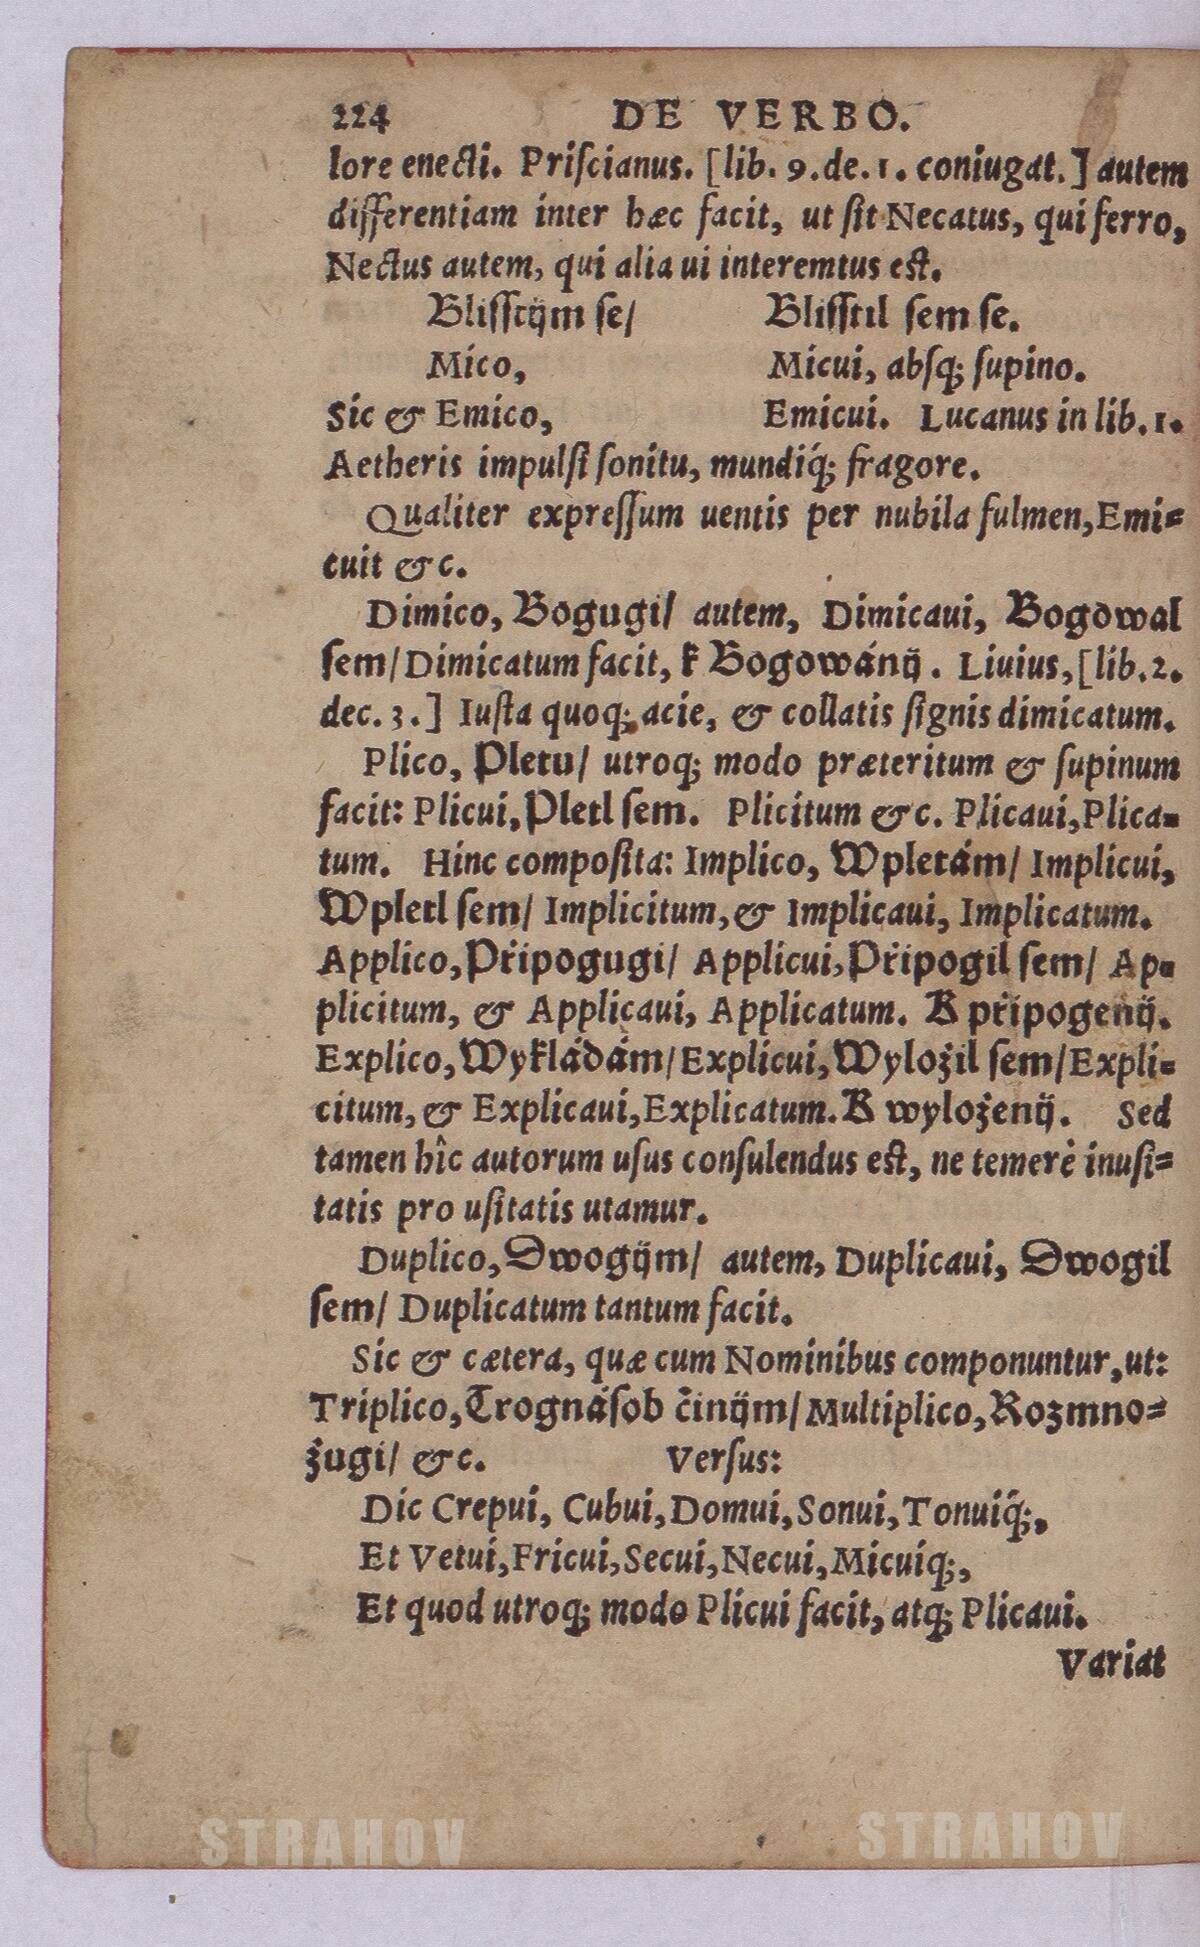 224 DE VERBO.
lore enecti. Priſcianus. [lib. 9. de. 1. coniugat.] autem
differentiam inter hæc facit, ut ſit Necatus, qui ferro,
Nectus autem, qui alia ui interemtus eſt.
Bliſſtijm ſe/ Bliſſtil ſem ſe.
Mico, Micui, abſq; ſupino.
Sic & Emico, Emicui. Lucanus in lib. 1.
Aetheris impulſi ſonitu, mundiq́; fragore.
Qualiter expreſſum uentis per nubila fulmen, Emi=
cuit &c.
Dimico, Bogugi/ autem, Dimicaui, Bogowal
ſem/ Dimicatum facit, k Bogowánij. Liuius, [lib. 2.
dec. 3.] Iuſta quoq; acie, & collatis ſignis dimicatum.
Plico, Pletu/ utroq; modo præteritum & ſupinum
facit: Plicui, Pletl ſem. Plicitum &c. Plicaui, Plica=
tum. Hinc compoſita: Implico, Wpletám/ Implicui,
Wpletl ſem/ Implicitum, & Implicaui, Implicatum.
Applico, Připogugi/ Applicui, Připogil ſem/ Ap=
plicitum, & Applicaui, Applicatum. K připogenij.
Explico, Wykládám/ Explicui, Wyložil ſem/ Expli=
citum, & Explicaui, Explicatum. K wyloženij. Sed
tamen hîc autorum uſus conſulendus eſt, ne temerè inuſi=
tatis pro uſitatis utamur.
Duplico, Dwogijm/ autem, Duplicaui, Dwogil
ſem/ Duplicatum tantum facit.
Sic & cætera, quæ cum Nominibus componuntur, ut:
Triplico, Trognáſob činijm/ Multiplico, Rozmno=
žugi/ &c. Verſus:
Dic Crepui, Cubui, Domui, Sonui, Tonuiq́;,
Et Vetui, Fricui, Secui, Necui, Micuiq;,
Et quod utroq; modo Plicui facit, atq; Plicaui.
Variat
STRAHOV STRAHOV